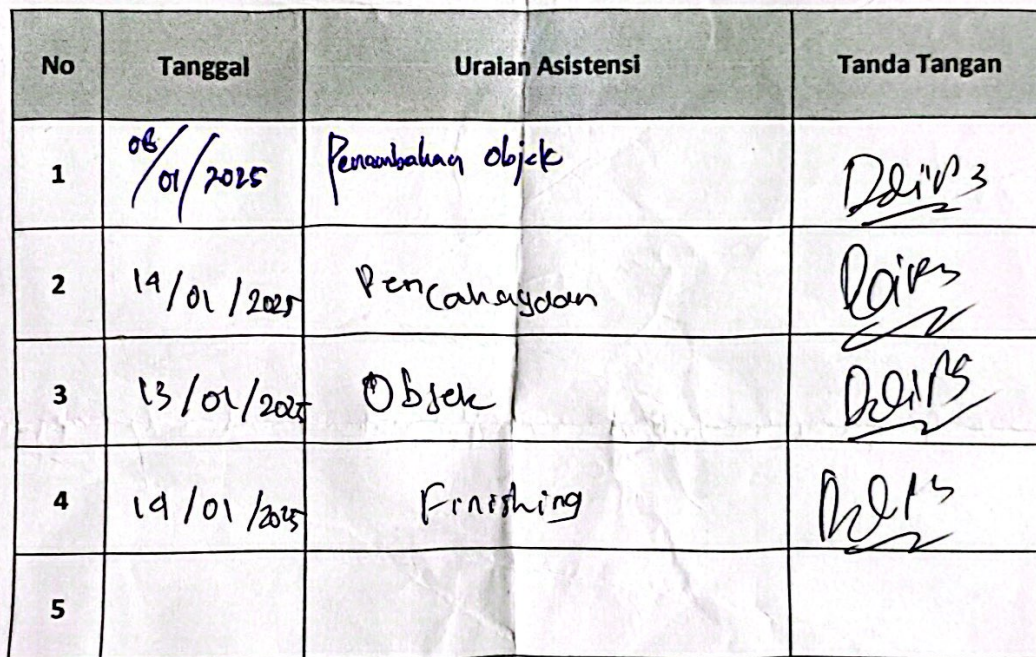 No Tanggal Uraian Asistensi Tanda Tangan
1 08/01/2025 Penambahan Objek
2 14/01/2025 Pencahayaan
3 13/01/2025 Objek
4 19/01/2025 Finishing
5